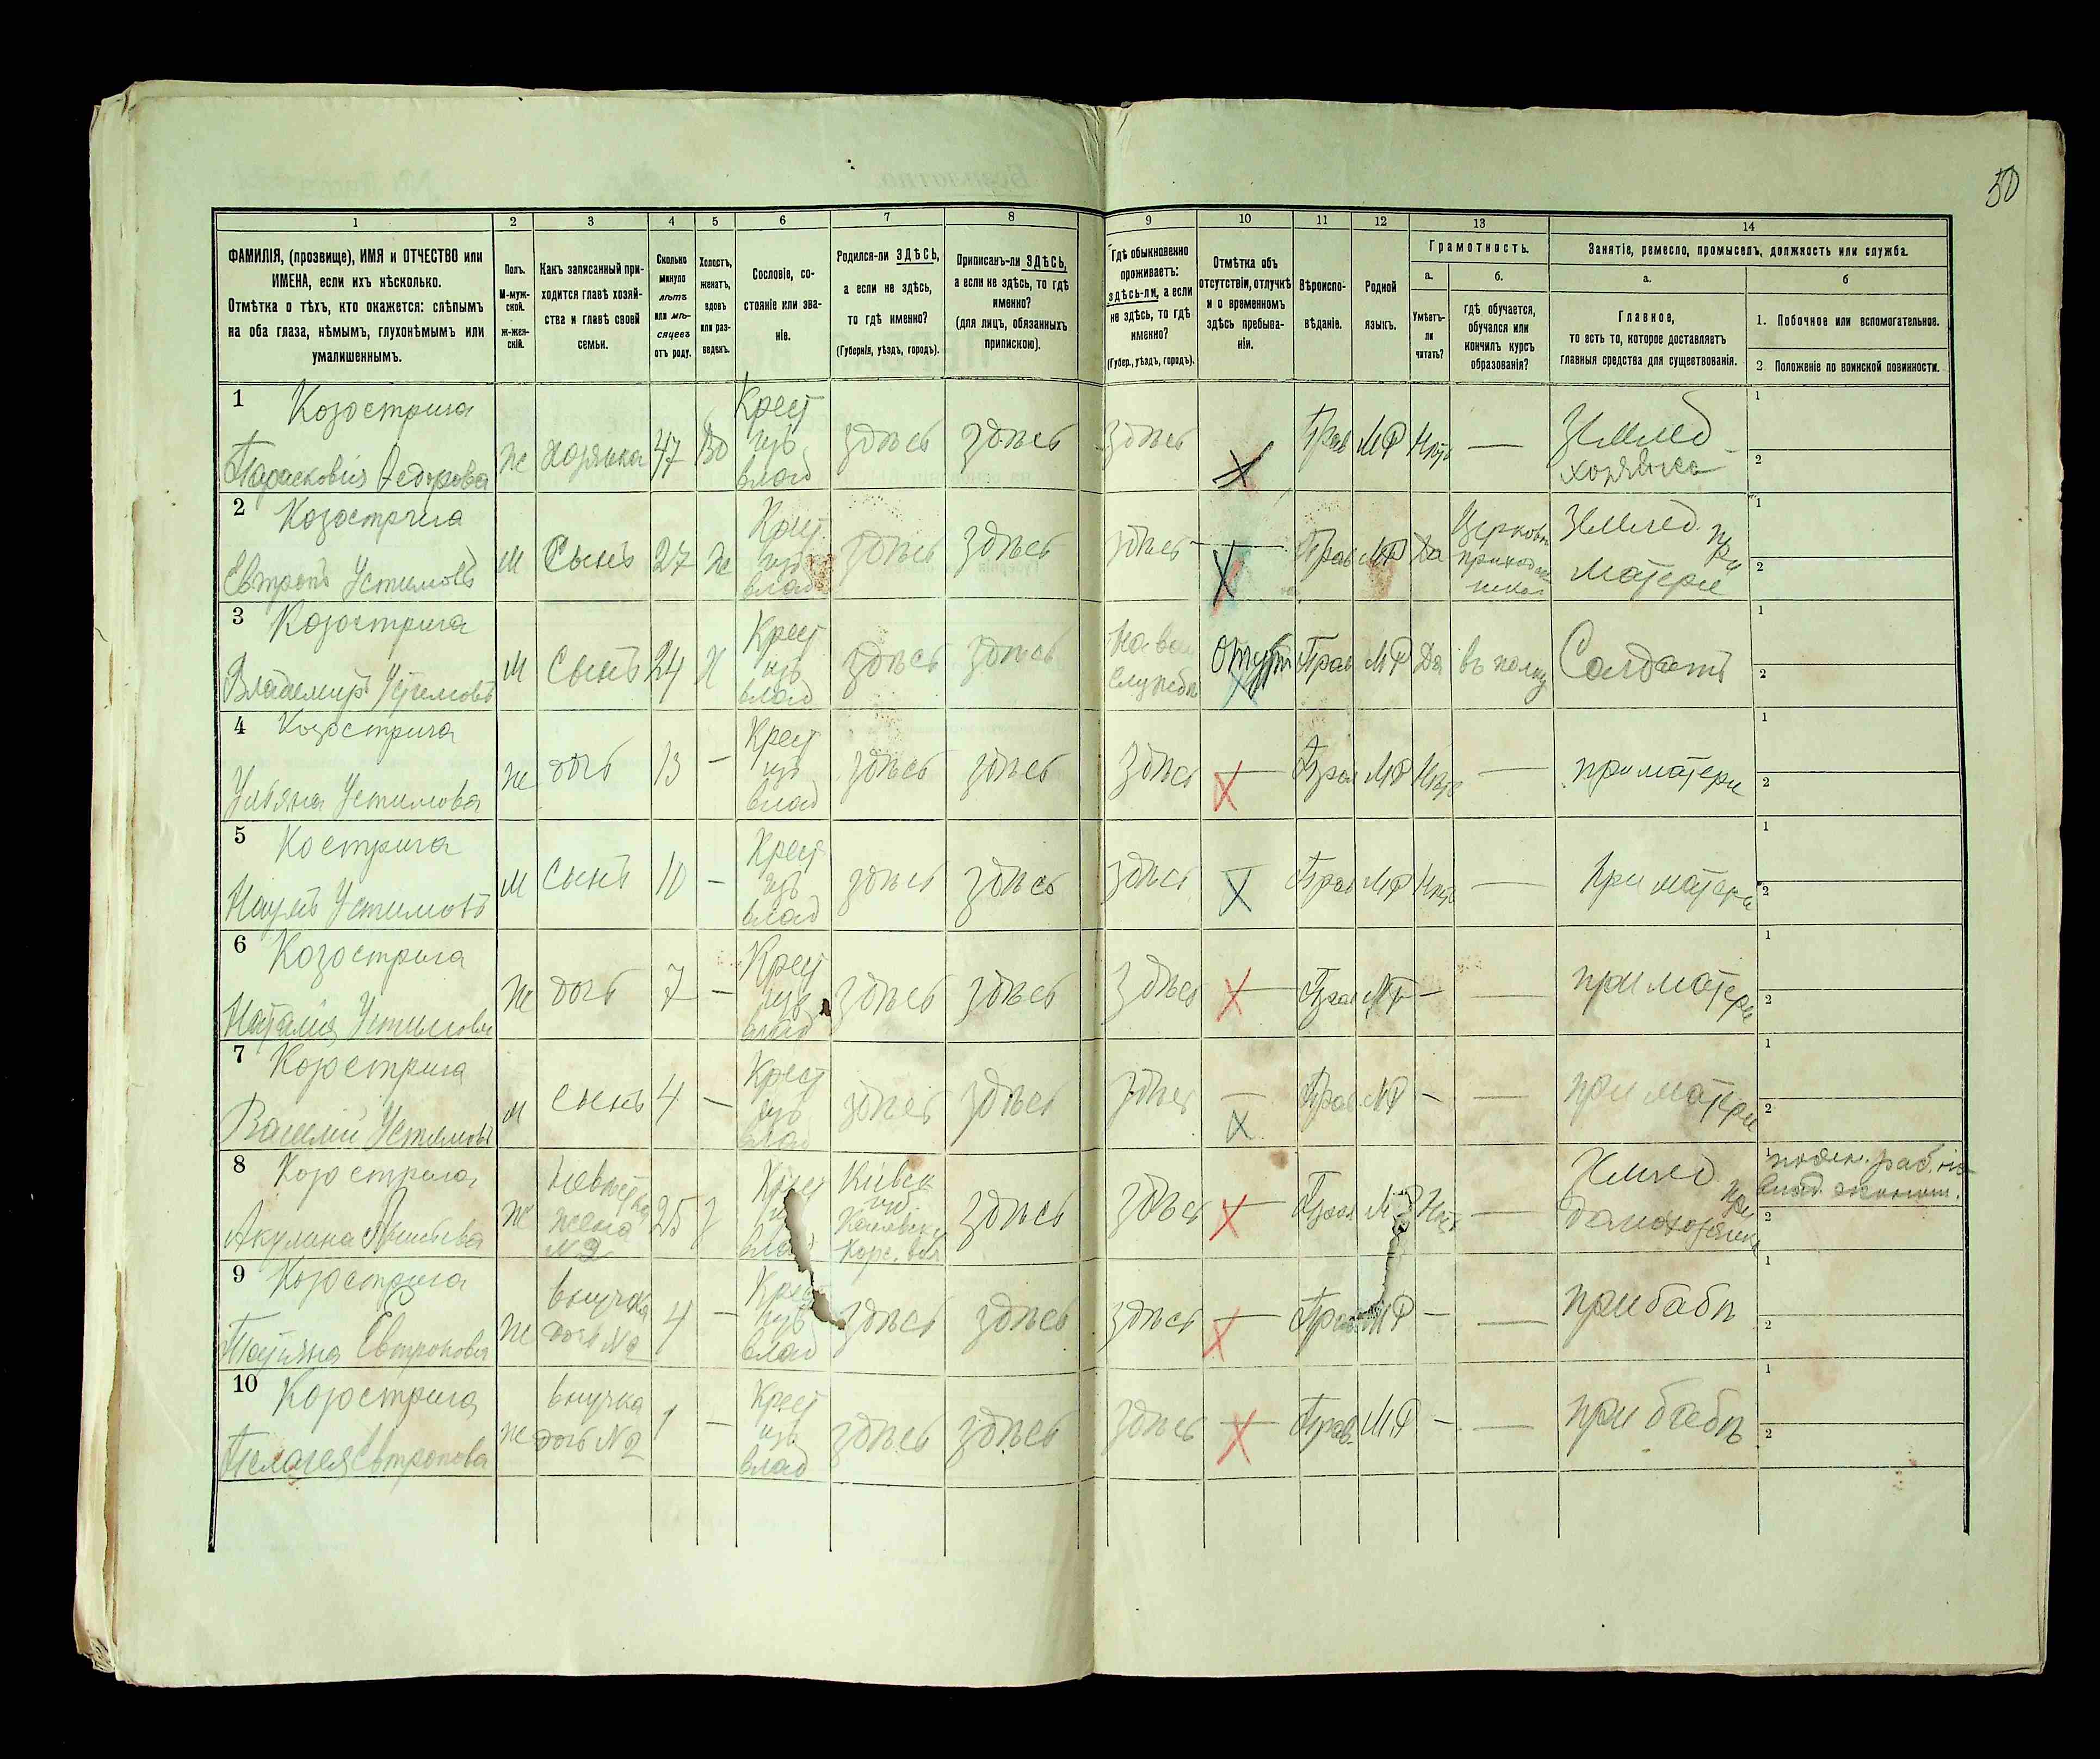 50
1 2 3 4 5 6 7 8 9 10 11 12 13 14
ФАМИЛІЯ, (прозвище), ИМЯ и ОТЧЕСТВО или
ИМЕНА, если ихъ нѣсколько.
Отмѣтка о тѣхъ, кто окажется: слѣпымъ
на оба глаза, нѣмымъ, глухонѣмымъ или
умалишеннымъ.
Полъ.
М-муж-
ской.
ж-жен-
скій.
Какъ записанный при-
ходится главѣ хозяй-
ства и главѣ своей
семьи.
Сколько
минуло
лѣтъ
или мѣ-
сяцевъ
отъ роду.
Холостъ,
женатъ,
вдовъ
или раз-
веденъ.
Сословіе, со-
стояніе или зва-
ніе.
Родился-ли ЗДѢСЬ,
а если не здѣсь,
то гдѣ именно?
(Губернія, уѣздъ, городъ).
Приписанъ-ли ЗДѢСЬ,
а если не здѣсь, то гдѣ
именно?
(для лицъ, обязанныхъ
припискою).
Гдѣ обыкновенно
проживаетъ:
здѣсь-ли, а если
не здѣсь, то гдѣ
именно?
(Губер., уѣздъ, городъ).
Отмѣтка объ
отсутствіи, отлучкѣ
и о временномъ
здѣсь пребыва-
ніи.
Вѣроиспо-
вѣданіе.
Родной
языкъ.
Грамотность.
а.
Умѣетъ-
ли
читать?
б.
гдѣ обучается,
обучался или
кончилъ курсъ
образованія?
Занятіе, ремесло, промыселъ, должность или служба.
а.
Главное,
то есть то, которое доставляетъ
главныя средства для существованія.
б
1. Побочное или вспомогательное.
2 Положеніе по воинской повинности.
1 Козострига
Парасковія Федорова
Ж хозяйка 47 Вд
Крест
изъ
влад
здѣсь здѣсь здѣсь
Прав МР Нѣтъ —
Землед
хозяйка
1
2
2 Козострига
Евтропъ Устимовъ
М Сынъ 27 Ж
Крест
изъ
влад
здѣсь здѣсь здѣсь —
Прав МР Да
Церковн
приходск
школ
Землед при
матери
1
2
3 Козострига
Владимиръ Устимовъ
М Сынъ 24 Х
Крест
изъ
влад
здѣсь здѣсь
На воен
службѣ
Прав МР Да въ полку
Солдатъ
1
2
4 Козострига
Ульяна Устимова
Ж дочь 13 —
Крест
изъ
влад
здѣсь здѣсь здѣсь —
Прав МР Нѣтъ —
при матери
1
2
5 Кострига
Наумъ Устимовъ
М Сынъ 10 —
Крест
изъ
влад
здѣсь здѣсь здѣсь —
Прав МР Нѣтъ —
При матери
1
2
6 Козострига
Наталия Устимова
Ж дочь 7 —
Крест
изъ
влад
здѣсь здѣсь здѣсь —
Прав МР — —
при матери
1
2
7 Козострига
Василий Устимовъ
М сынъ 4 —
Крест
изъ
влад
здѣсь здѣсь здѣсь —
Прав МР — —
при матери
1
2
8 Козострига
Акулина
Ж
невѣстка
жена
N 2
25 З
Крест
влад
Кіевск
губ
Каневск у
Корс. вол
здѣсь здѣсь —
Прав МР Нѣтъ —
Землед при
домохозяйкѣ
1
2
9 Козострига
Татьяна Евтропова
Ж
внучка
дочь N 2
4 —
Крест
изъ
влад
здѣсь здѣсь здѣсь —
Прав МР — —
при бабѣ
1
2
10 Козострига
Пелагея Евтропова
Ж
внучка
дочь N 2
1 —
Крест
изъ
влад
здѣсь здѣсь здѣсь —
Прав МР — —
при бабѣ
1
2